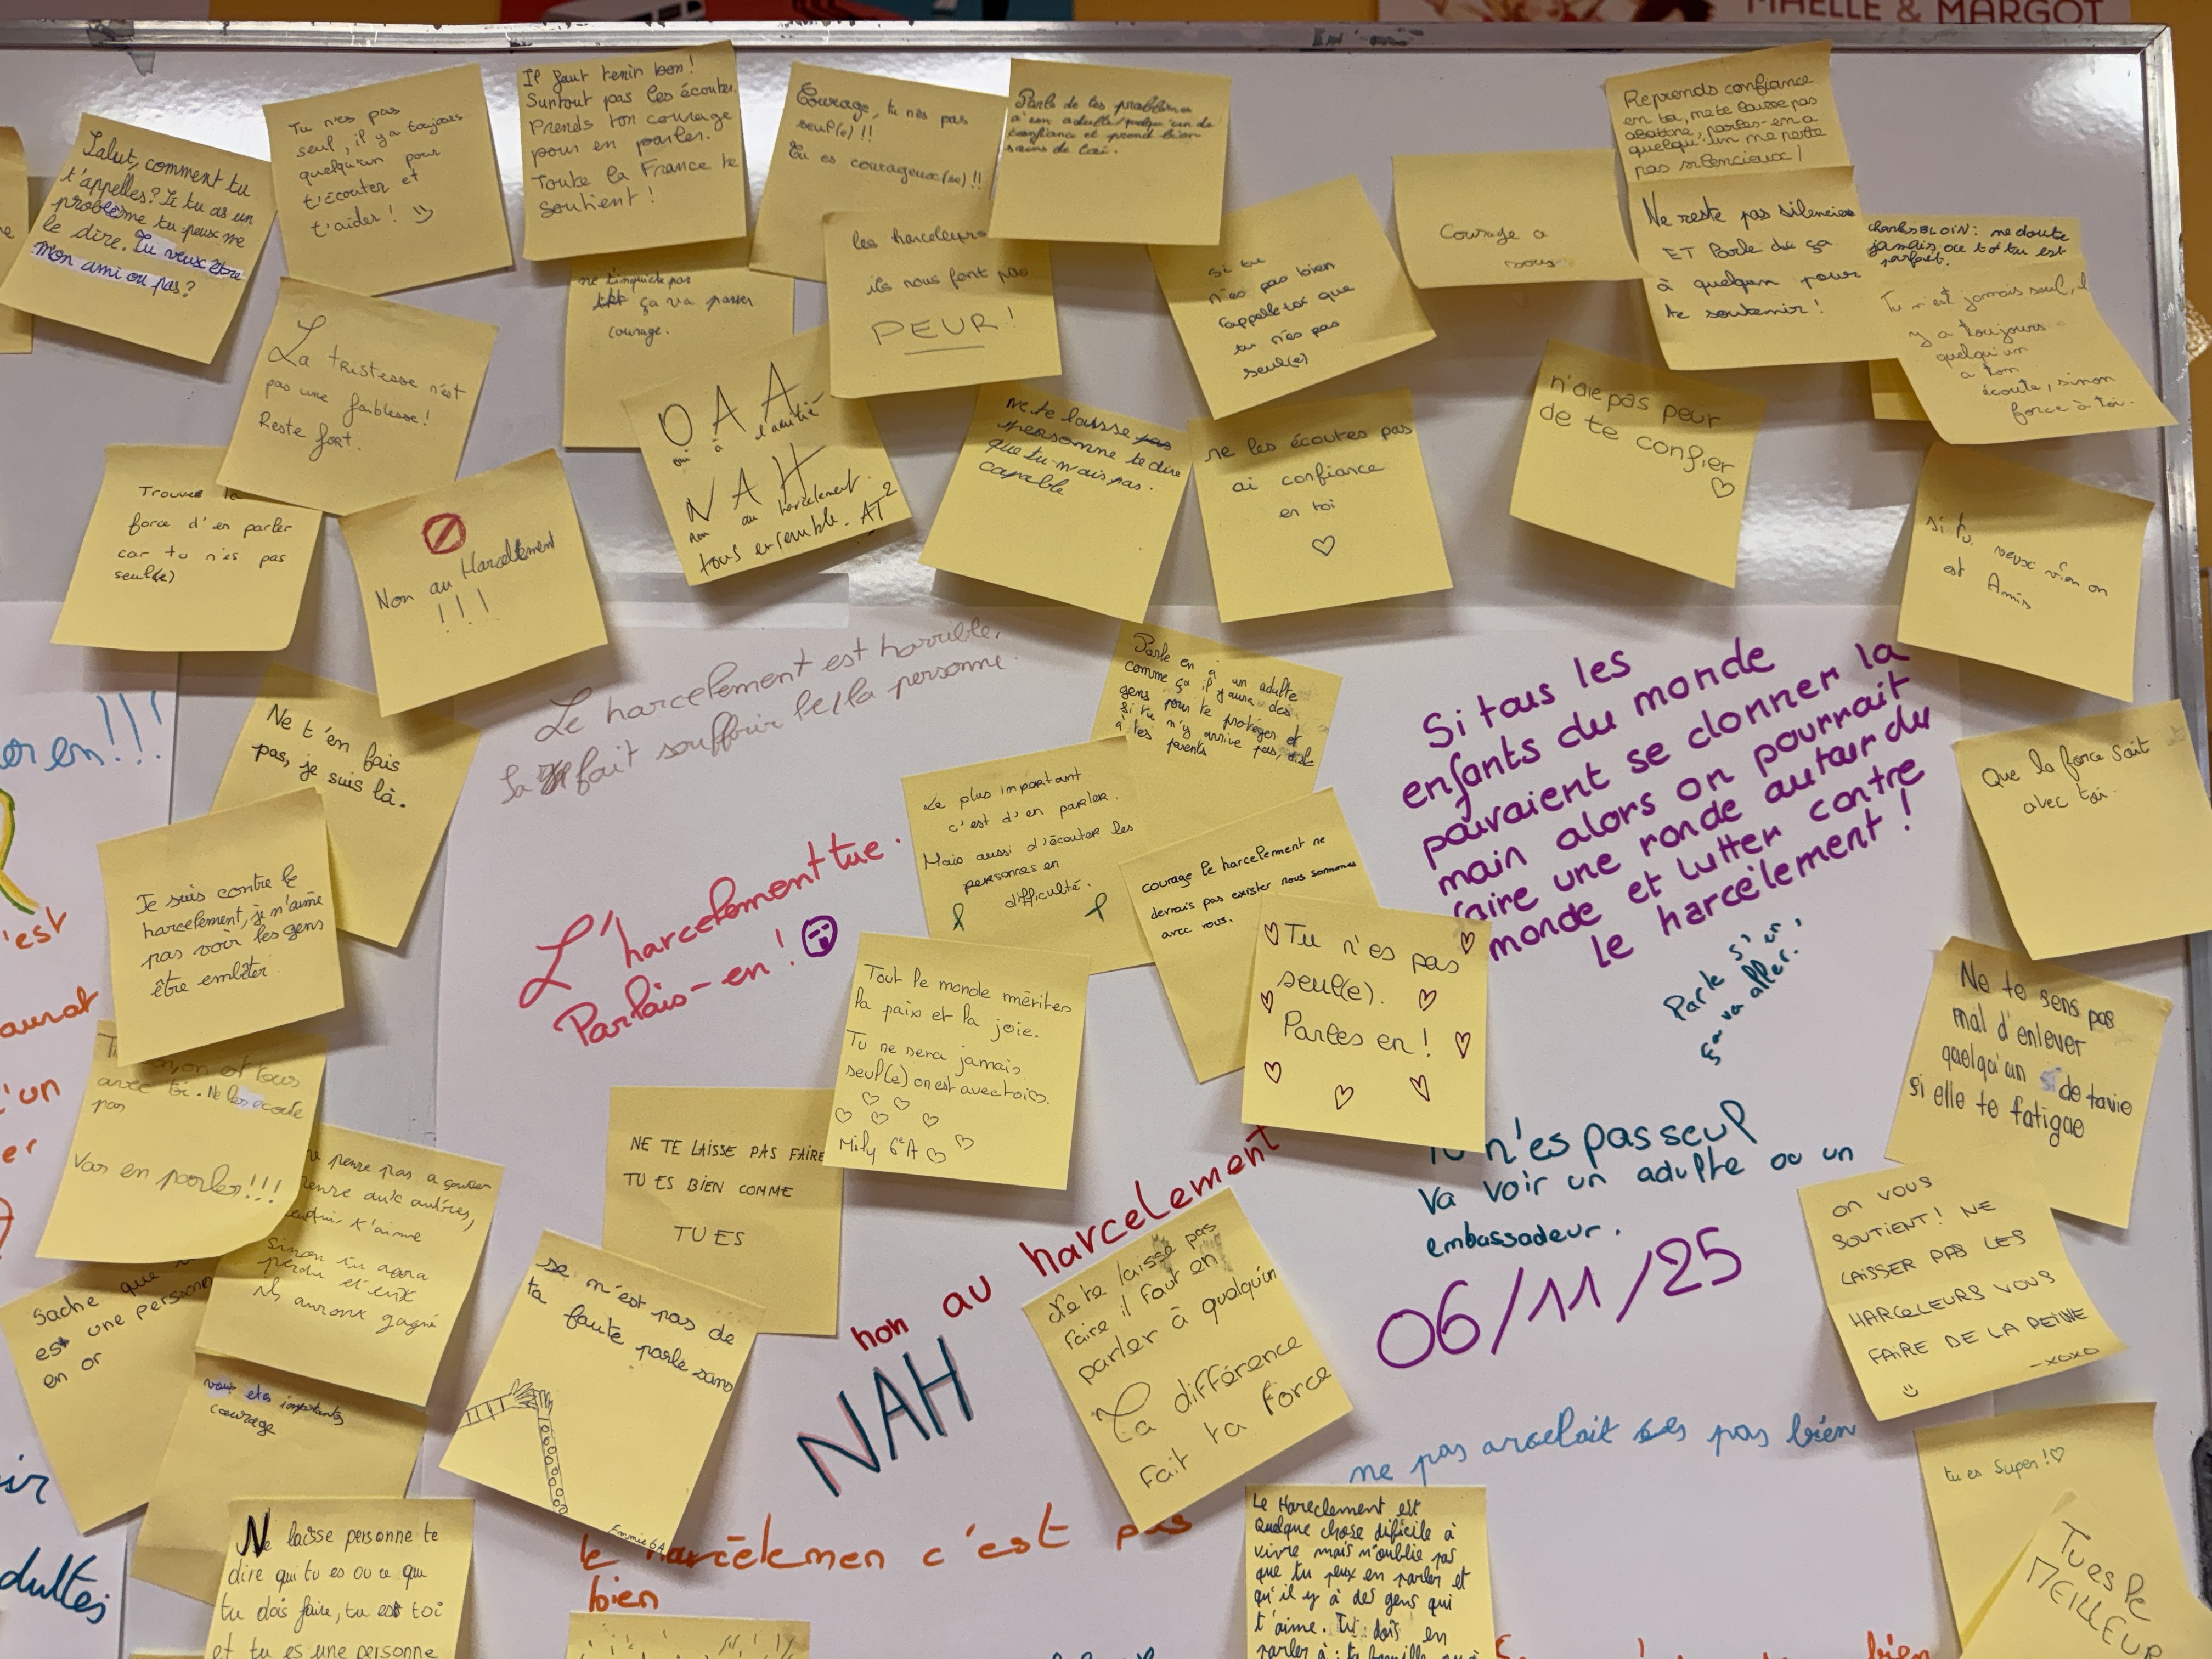 MAELLE & MARGOT
Salut, comment tu
t'appelles? Si tu as un
problème tu peux me
le dire. Tu veux être
mon ami ou pas?
Tu n'es pas
seul, il y a toujours
quelqu'un pour
t'écouter et
t'aider !
Il faut tenir bon !
Surtout pas les écouter.
Prends ton courage
pour en parler.
Toute la France te
soutient !
Courage, tu n'es pas
seul(e) !!
Tu es courageux(se) !!
Parle de tes problèmes
à un adulte/quelqu'un de
confiance et prend bien
soins de toi.
Reprends confiance
en toi, ne te laisse pas
abattre, parles-en a
quelqu'un ne reste
pas silencieux !
Ne reste pas silencieux
ET Parle de ça
à quelqun pour
te soutenir !
Charles BLOIN : ne doute
jamais, oe toi tu est
parfait.
Tu n'est jamais seul, il
y a toujours
quelqu'un
a ton
écoute, sinon
force à toi.
Courage a
vous
si tu
n'es pas bien
rappelle toi que
tu n'es pas
seul(e)
les harceleurs
ils nous font pas
PEUR !
ne t'inquiète pas
ça va passer
courage.
La tristesse n'est
pas une faiblesse !
Reste fort.
O A A
oui à l'amitié
N A H
non au harcelement.
tous ensemble. AT²
ne te laisse pas
personne te dire
que tu n'ais pas
capable.
ne les écoutes pas
ai confiance
en toi
♡
n'aie pas peur
de te confier
♡
si tu veux vien on
est Amis
Trouves la
force d'en parler
car tu n'es pas
seul(e)
Non au Harcelement
!!!
Le harcelement est horrible,
Sa fait souffrir le/la personne.
Parle en à un adulte
comme ça il y aura des
gens pour te protéger et
si tu n'y arrive pas,
à tes parents
Si tous les
enfants du monde
pouvaient se donner la
main alors on pourrait
faire une ronde autour du
monde et lutter contre
le harcèlement !
Que la force soit
avec toi.
oren!!!
Ne t'en fais
pas, je suis là.
Le plus important
c'est d'en parler.
Mais aussi d'écouter les
personnes en
difficulté.
courage le harcelement ne
devrais pas exister nous sommes
avec vous.
L'harcelement tue.
Parlais-en !
Je suis contre le
harcelement, je n'aime
pas voir les gens
être embêter.
'est
aurat
'un
er
Tu n'es pas
seul(e).
Partes en !
Parle s'en,
ça va aller.
Tout le monde mérites
la paix et la joie.
Tu ne sera jamais
seul(e) on est avec toi♡.
Mily 6°A ♡
Ne te sens pas
mal d'enlever
quelqu'un de ta vie
si elle te fatigue
on est tous
avec toi. Ne les écoute
pas
Vas en parler!!!
NE TE LAISSE PAS FAIRE
TU ES BIEN COMME
TU ES
Tu n'es pas seul
va voir un adulte ou un
embassadeur.
06/11/25
on vous
SOUTIENT ! NE
LAISSER PAS LES
HARCELEURS VOUS
FAIRE DE LA PEINE
-xoxo
ne pense pas a
aux autres,
t'aime
sinon tu aura
perdu et eux
ils auront gagné
Sache que
est une personn
en or
se n'est pas de
ta faute parle sans
6A
non au harcelement
NAH
Ne te laisse pas
faire il faut en
parler à quelqu'un
La différence
fait ta force
vous etes importantes
courage
ne pas arcelait ses pas bien
tu es super !♡
Tu es le
MEILLEUR
ir
dultes
Ne laisse personne te
dire qui tu es ou ce que
tu dois faire, tu est toi
et tu es une personne
le harcèlemen c'est pas
bien
Le Harcelement est
Quelque chose dificile à
vivre mais n'oublie pas
que tu peux en parler et
qu'il y à des gens qui
t'aime. Tu dois en
parler à : ta famille
bien